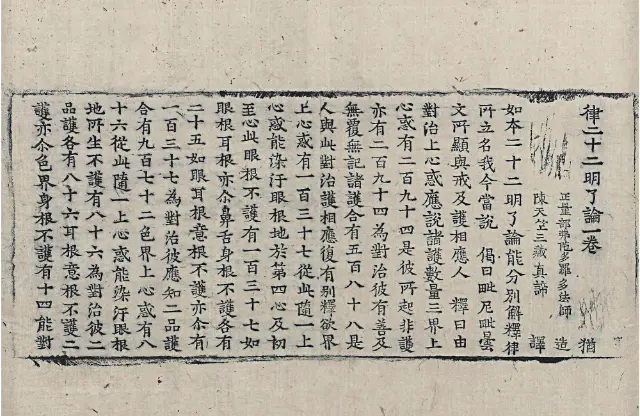 律二十二明了論一卷 猶
正量部佛陀多羅多法師 造
陳天竺三藏真諦 譯
如本二十二明了論能分別解釋律
所立名我今當說 偈曰毗尼毗曇
文所顯與戒及護相應人 釋曰由
對治上心惑應說諸護數量三界上
心惑有二百九十四是彼所起非護
亦有二百九十四為對治彼有善及
無覆無記諸護合有五百八十八是
人與此對治護相應復有別釋欲界
上心惑有一百三十七從此隨一上
心惑能染汙眼根地於第四心及初
至心此眼根不護有一百三十七如
眼根耳根亦尒鼻舌身根不護各有
二十五如眼耳根意根不護亦尒有
一百三十七為對治彼應知二品護
合有九百七十二色界上心惑有八
十六從此隨一上心惑能染汙眼根
地所生不護有八十六為對治彼二
品護各有八十六耳根意根不護二
護亦尒色界身根不護有十四能對